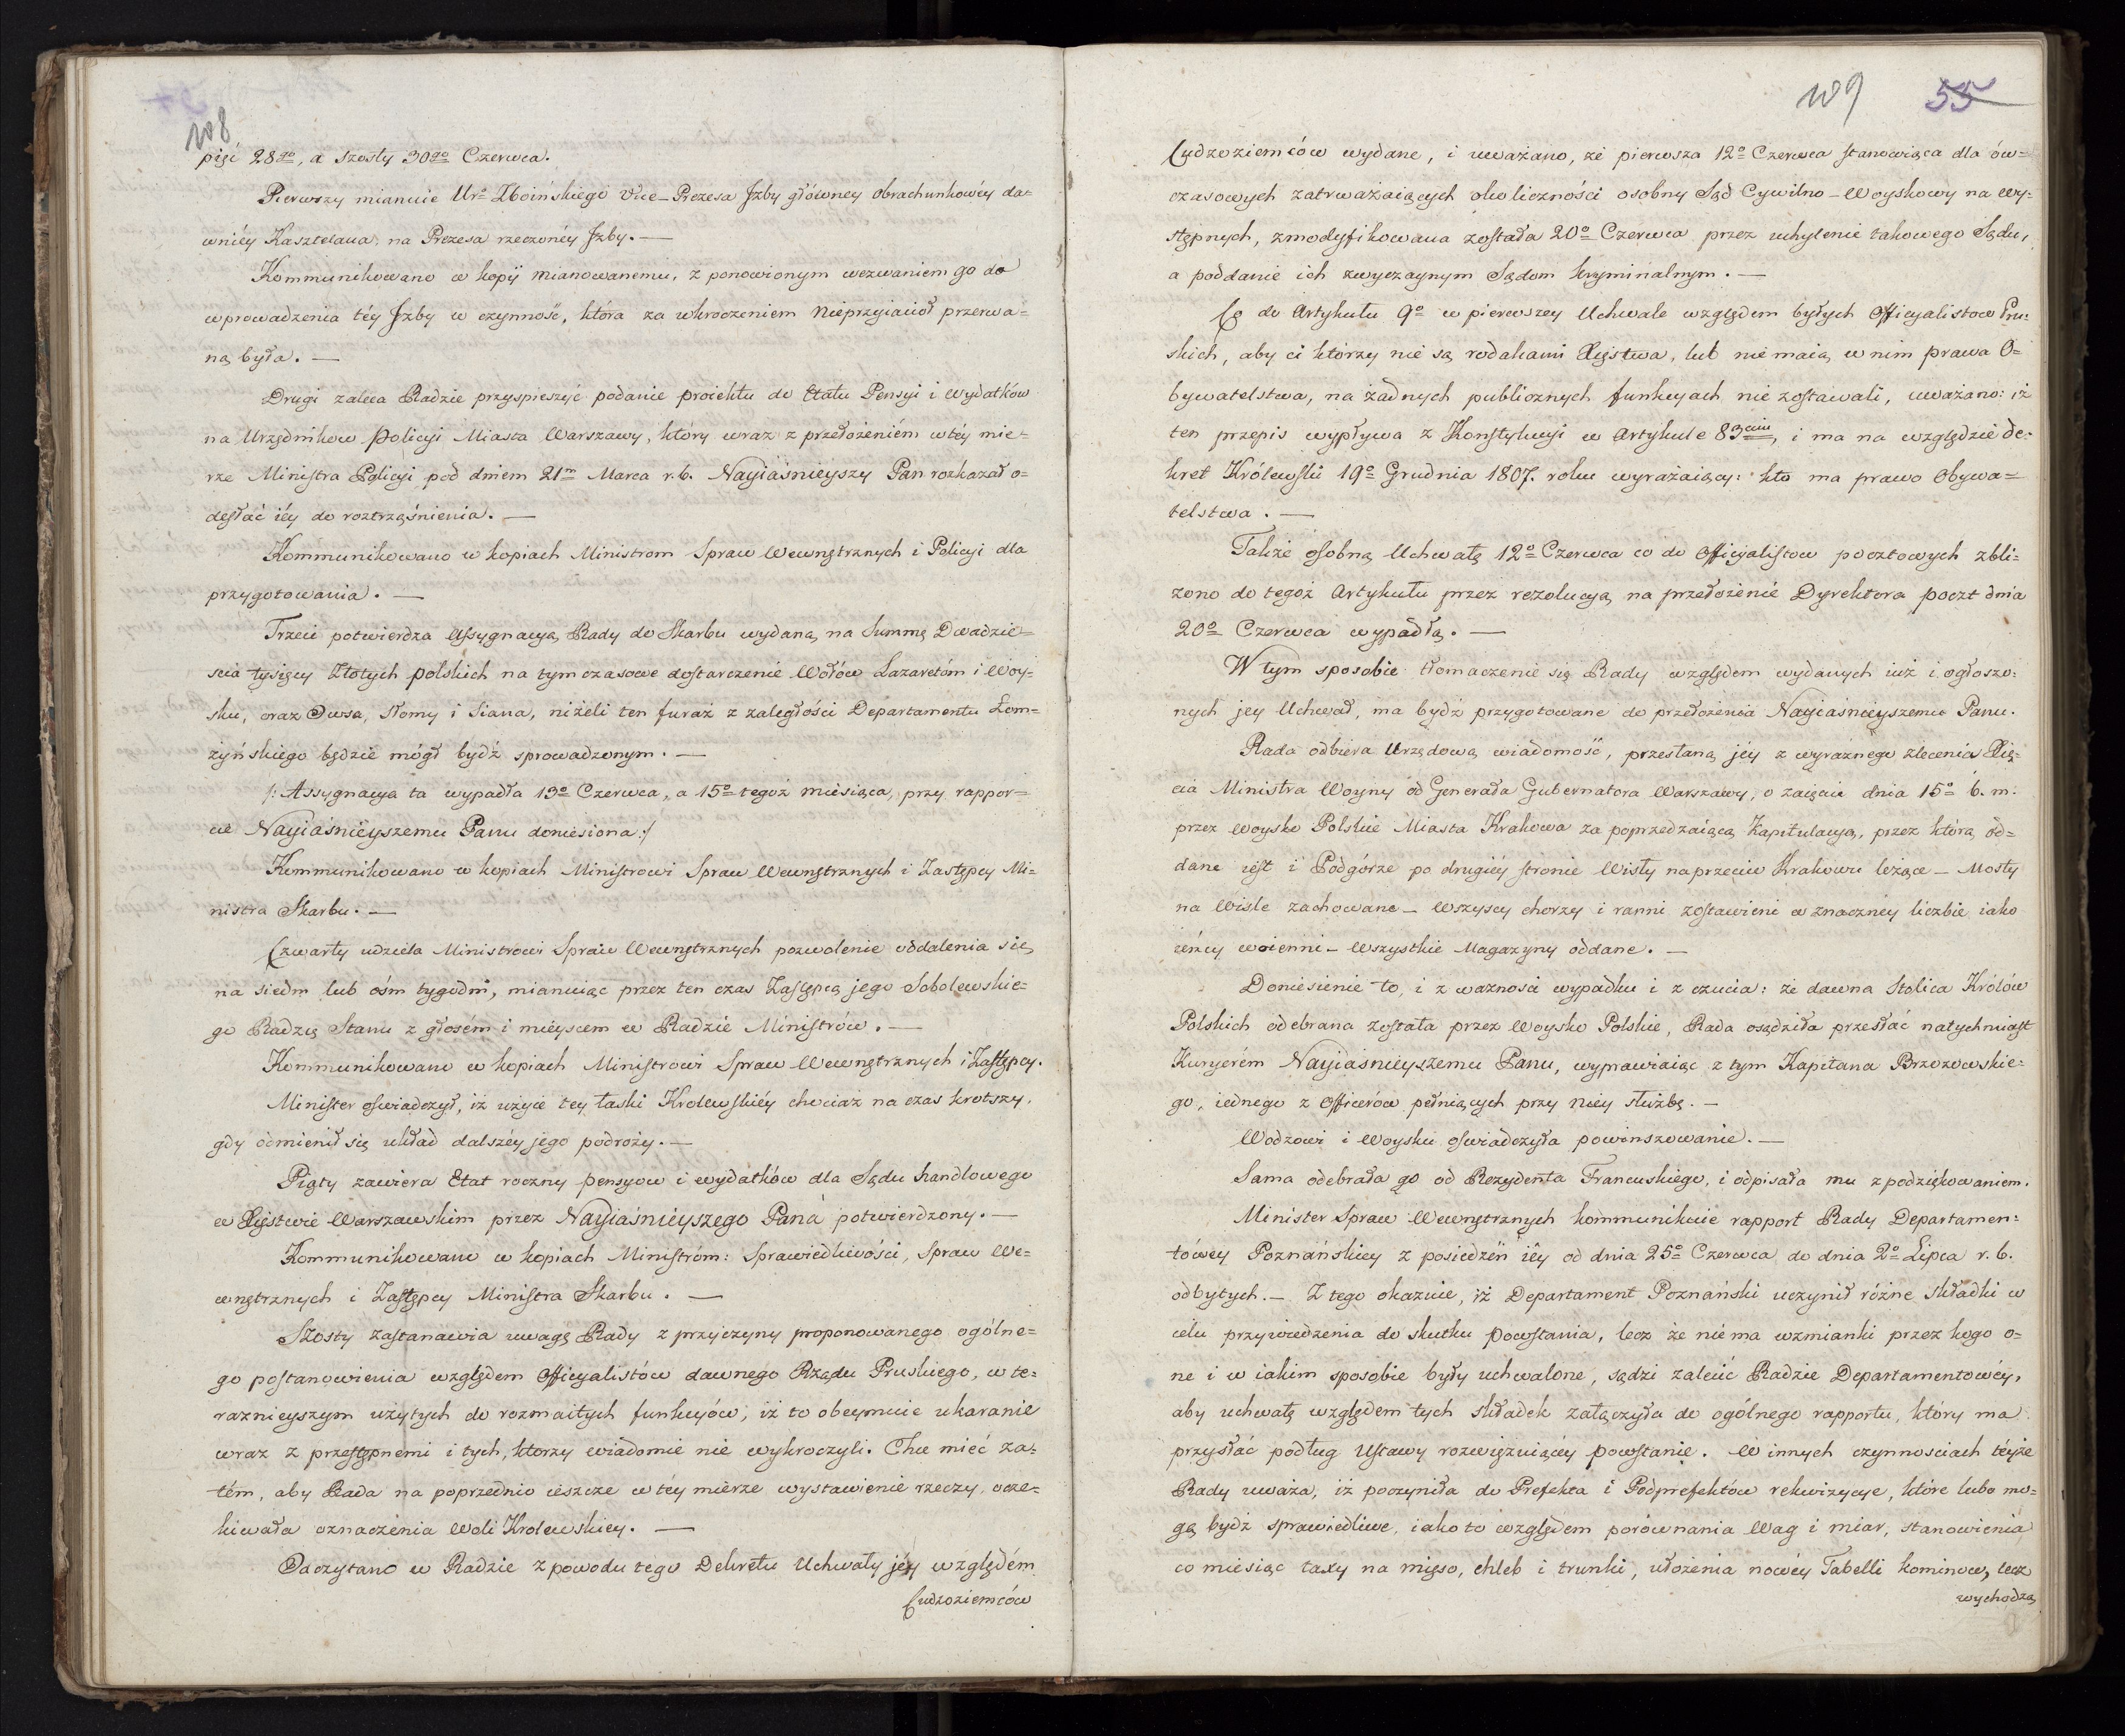 108
pięć 28go, a szosty 30go Czerwca.
Pierwszy mianuie Uro Zboińskiego Vice-Prezesa Jzby główney Obrachunkowéy da-
wniéy Kasztelana, na Prezesa rzeczonéy Jzby. —
Kommunikowano w kopij mianowanemu, z ponowionym wezwaniem go do
wprowadzenia téy Jzby w czynność, która za wkroczeniem Nieprzyiaciół przerwa=
ną była. —
Drugi zaleca Radzie przyspieszyć podanie proiektu do Etatu Pensyi i wydatków
na Urzędników Policyi Miasta Warszawy, który wraz z przełożeniém w téy mie-
rze Ministra Policyi pod dniem 21m Marca r. b. Nayiaśnieyszy Pan rozkazał o-
desłać iéy do roztrząśnienia. —
Kommunikowano w kopiach Ministrom Spraw Wewnętrznych i Policyi dla
przygotowania. —
Trzeci potwierdza Assygnacyą Rady do Skarbu wydaną na Summę Dwadzie=
scia tysięcy Złotych polskich na tymczasowe dostarczenie Wołów Lazaretóm i Woy-
sku, oraz Owsa, słomy i Siana, niżeli ten furaż z zaległości Departamentu Łom=
żyńskiego będzie mógł bydź sprowadzonym. —
/: Assygnacya ta wypadła 13o Czerwca, a 15o tegoż miesiąca, przy rappor=
cie Nayiaśnieyszemu Panu doniesiona :/
Kommunikowano w kopiach Ministrowi Spraw Wewnętrznych i Zastępcy Mi=
nistra Skarbu. —
Czwarty udziela Ministrowi Spraw Wewnętrznych pozwolenie oddalenia się
na siedm lub ośm tygodni, mianuiąc przez ten czas Zastępcą jego Sobolewskie=
go Radzcę Stanu z głosém i mieyscem w Radzie Ministrów. —
Kommunikowano w kopiach Ministrowi Spraw Wewnętrznych i Zastępcy.
Minister oświadczył, iż użyie tey łaski Krolewskiéy chociaż na czas krotszy,
gdy odmienił się układ dalszéy jego podroży. —
Piąty zawiera Etat roczny pensyow i wydatków dla Sądu handlowego
w Xięstwie Warszawskim przez Nayiaśnieyszego Pana potwierdzony. —
Kommunikowano w kopiach Ministróm: Sprawiedliwości, Spraw We=
wnętrznych i Zastępcy Ministra Skarbu. —
Szosty zastanawia uwagę Rady z przyczyny proponowanego ogólne=
go postanowienia względem Officyalistów dawnego Rządu Pruskiego, w te=
raznieyszym użytych do rozmaitych funkcyów, iż to obeymuie ukaranie
wraz z przestępnemi i tych, ktorzy wiadomie nie wykroczyli. Chce mieć za-
tém, aby Rada na poprzednio ieszcze w téy mierze wystawienie rzeczy, ocze=
kiwała oznaczenia Woli Krolewskiey. —
Odczytano w Radzie z powodu tego Dekretu Uchwały jéy względém
Cudzoziemców
109 55
Cudzoziemców wydane, i uważano, że pierwsza 12o Czerwca stanowiąca dla ów=
czasowych zatrważaiących okoliczności osobny Sąd Cywilno-Woyskowy na wy=
stępnych, zmodyfikowana została 20o Czerwca przez uchylenie takowego Sądu,
a poddanie ich zwyczaynym Sądom kryminalnym. —
Co do Artykułu 9o w pierwszey Uchwale względem byłych Officyalistow Pru=
skich, aby ci którzy nie są rodakami Xięstwa, lub nie maią w nim prawa O=
bywatelstwa, na żadnych publicznych funkcyach nie zostawali, uważano: iż
ten przepis wypływa z Konstytucyi w Artykule 83cim, i ma na względzie de=
kret Królewski 19o Grudnia 1807. roku wyrażaiący: kto ma prawo Obywa=
telstwa. —
Także osobną Uchwałę 12o Czerwca co do Officyalistow pocztowych zbli=
żono do tegoż Artykułu przez rezolucyą na przełożenie Dyrektora poczt dnia
20o Czerwca wypadłą. —
W tym sposobie tłomaczenie się Rady względem wydanych iuż i ogłoszo=
nych jey Uchwał, ma bydź przygotowane do przełożenia Nayiaśnieyszemu Panu.
Rada odbiera Urzędową wiadomość, przesłaną jéy z wyraźnego zlecenia Xię=
cia Ministra Woyny od Generała Gubernatora Warszawy, o zaięciu dnia 15o b. m.
przez woysko Polskie Miasta Krakowa za poprzedzaiącą Kapitulacyą, przez którą od=
dane iest i Podgórze po drugiéy stronie Wisły naprzeciw Krakowu leżące — Mosty
na Wisle zachowane — Wszyscy chorzy i ranni zostawieni w znaczney liczbie iako
ieńcy woienni — Wszystkie Magazyny oddane. —
Doniesienie to, i z ważnosci wypadku i z czucia: że dawna Stolica Królów
Polskich odebrana została przez Woysko Polskie, Rada osądziła przesłać natychmiast
Kuryerém Nayiaśnieyszemu Panu, wyprawiaiąc z tym Kapitana Brzozowskie=
go, iednego z Officerów pełniących przy niey służbę. —
Wodzowi i Woysku oświadczyła powinszowanie. —
Sama odebrała go od Rezydenta Francuskiego, i odpisała mu z podziękowaniem.
Minister Spraw Wewnętrznych kommunikuie rapport Rady Departamen=
towéy Poznańskiey z posiedzeń iéy od dnia 25o Czerwca do dnia 2o Lipca r. b.
odbytych. — Z tego okazuie, iż Departament Poznański uczynił różne składki w
celu przywiedzenia do skutku powstania, lecz że nie ma wzmianki przez kogo o=
ne i w iakim sposobie były uchwalone, sądzi zalecić Radzie Departamentowéy,
aby uchwałę względem tych składek załączyła do ogólnego rapportu, który ma
przysłać podług Ustawy rozwięzuiącéy powstanie. W innych czynnosciach téyże
Rady uważa, iż poczyniła do Prefekta i Podprefektów rekwizycye, które lubo mo=
gą bydź sprawiedliwe, iako to względem porównania Wag i miar, stanowienia
co miesiąc taxy na mięso, chleb i trunki, ułożenia nowéy Tabelli kominow, lecz
wychodzą